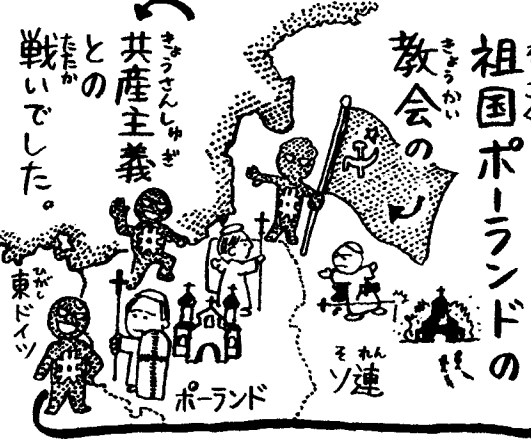 祖国ポーランドの
教会の
共産主義
との
戦いでした。
東ドイツ
ポーランド
ソ連